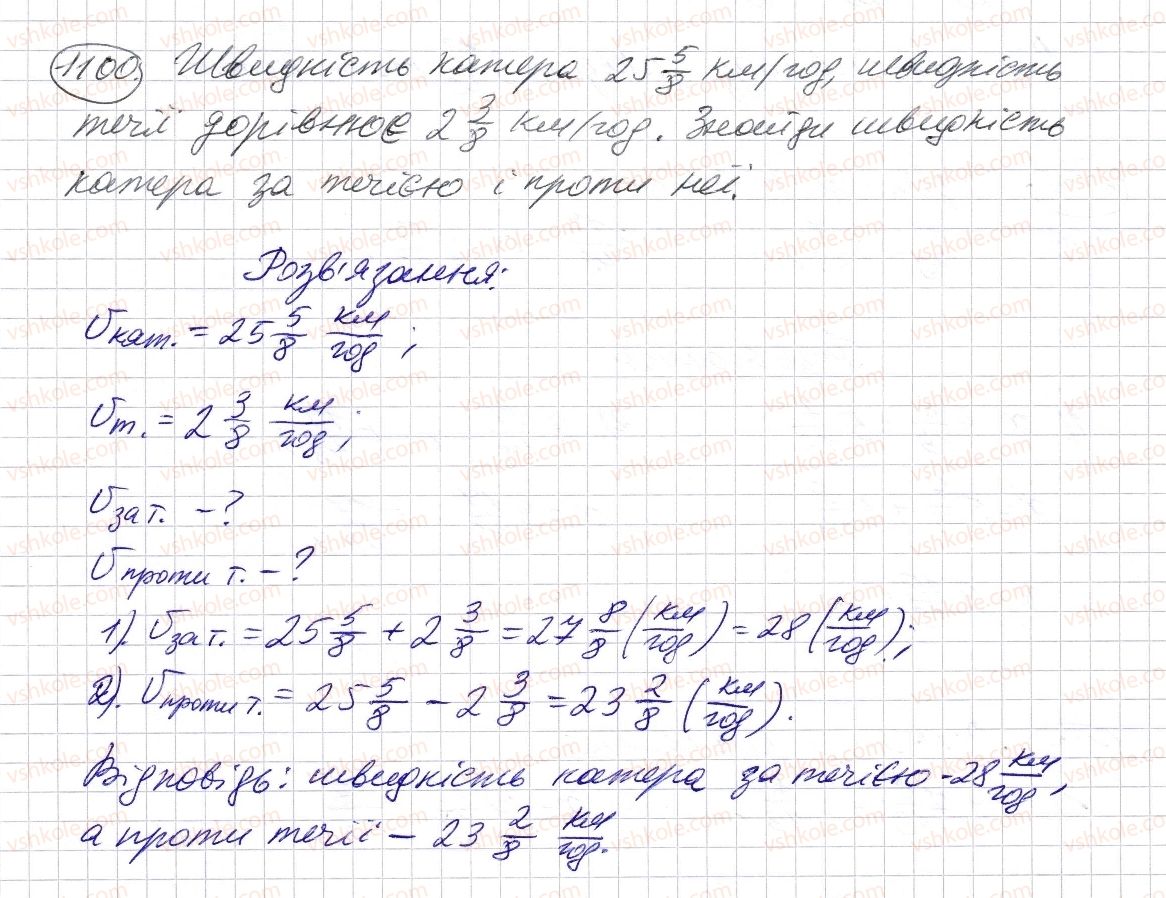 1100. Швидкість катера 25 5/8 км/год, швидкість
течії дорівнює 2 3/8 км/год. Знайди швидкість
катера за течією і проти неї.
Розв'язання:
υкат. = 25 5/8 км/год;
υт. = 2 3/8 км/год;
υза т. – ?
υпроти т. – ?
1). υза т. = 25 5/8 + 2 3/8 = 27 8/8 (км/год) = 28 (км/год);
2). υпроти т. = 25 5/8 – 2 3/8 = 23 2/8 (км/год).
Відповідь: швидкість катера за течією – 28 км/год,
а проти течії – 23 2/8 км/год.
vshkole.com